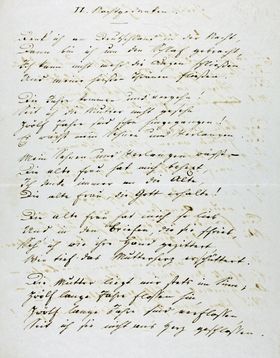 II. Nachtgedanken.
Denk ich an Deutschland in der Nacht,
Dann bin ich um den Schlaf gebracht,
Ich kann nicht mehr die Augen schließen
Und meine heißen Thränen fließen.
Die Jahre kommen und vergehn!
Seit ich die Mutter nicht gesehn
Zwölf Jahre sind schon hingegangen!
Es wächst mein Sehnen und Verlangen
Mein Sehnen und Verlangen wächst –
Die alte Frau hat mich behext
Ich denke immer an die Alte,
Die alte Frau, die Gott erhalte!
Die alte Frau hat mich so lieb
Und in den Briefen, die sie schrieb,
Seh ich wie ihre Hand gezittert,
Wie tief das Mutterherz erschüttert.
Die Mutter liegt mir stets im Sinn,
Zwölf lange Jahre flossen hin,
Zwölf lange Jahre sind verflossen
Seit ich sie nicht ans Herz geschlossen.